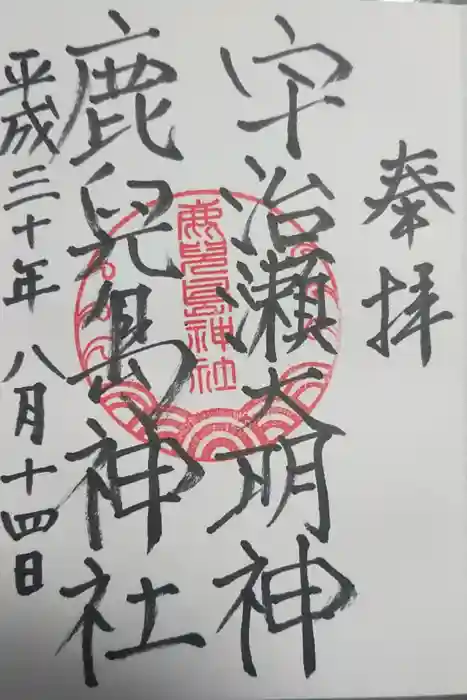 奉拝
宇治瀬大明神
鹿兒島神社
鹿兒島神社
平成三十年八月十四日